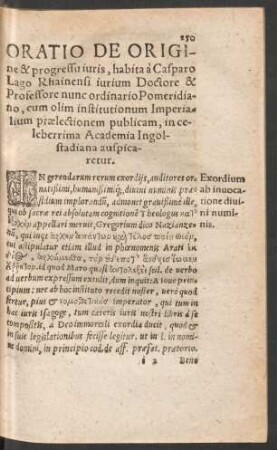 150
ORATIO DE ORIGI-
ne & progressu iuris, habita à Casparo
Lago Rhainensi iurium Doctore &
Professore nunc ordinario Pomeridia-
no, cum olim institutionum Imperia-
lium prælectionem publicam, in ce-
leberrima Academia Ingol-
stadiana auspica-
retur.
IN gerendarum rerum exordijs, auditores or
natissimi, humanissimiq́;, diuini numinis præ
sidium implorandū, admonet grauissimè ille,
qui ob sacræ rei absolutam cognitionē Theologus
appellari meruit, Gregorius diuus Nazianze-
nus, qui inqt
cui astipulatur etiam illud in phœnomenis Arati
quod
uerbum expressum extulit, dum inquit: A Ioue princi-
pium: nec ab hoc instituto recedit noster, uerè quod
fertur, pius & imperator, qui tum in
hac iuris Isagoge, tum cæteris iuris nostri libris à se
compositis, à Deo immortali exordia ducit, quod &
in suis legislationibus fecisse legitur. ut in l. in nomi-
ne domini, in principio cod. de off. præfect. prætorio.
Exordium
ab inuoca-
tione diui-
ni numi-
nis.
i 2 Bene